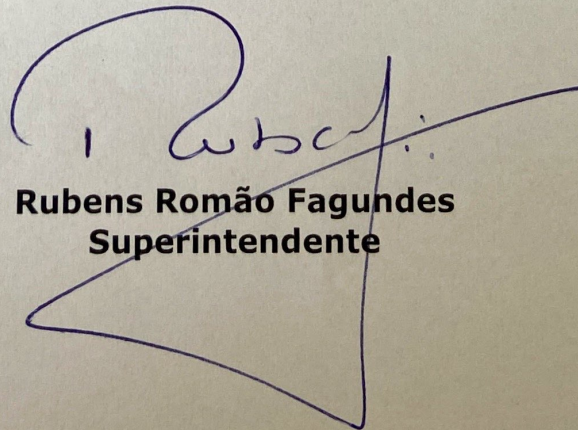 Rubens Romão Fagundes
Superintendente